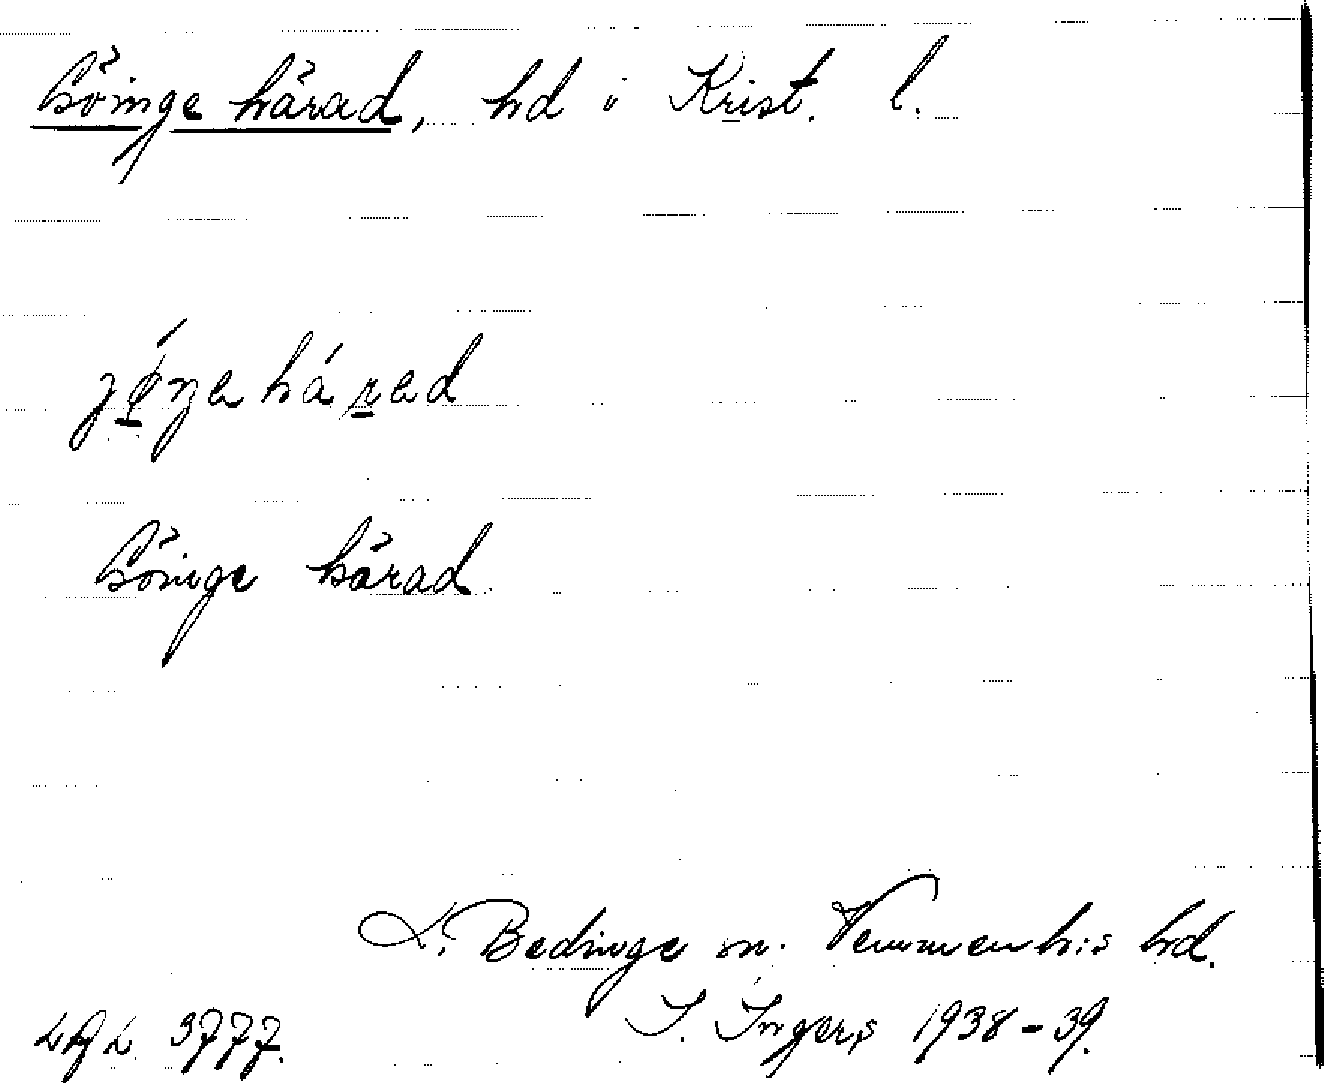 Göinge härad, hd i Krist. l.
jǿ̱ŋa há̱rad
Göinge härad.
L. Bedinge sn. Vemmenh:s hd.
I. Ingers 1938-39.
LAL 3777.